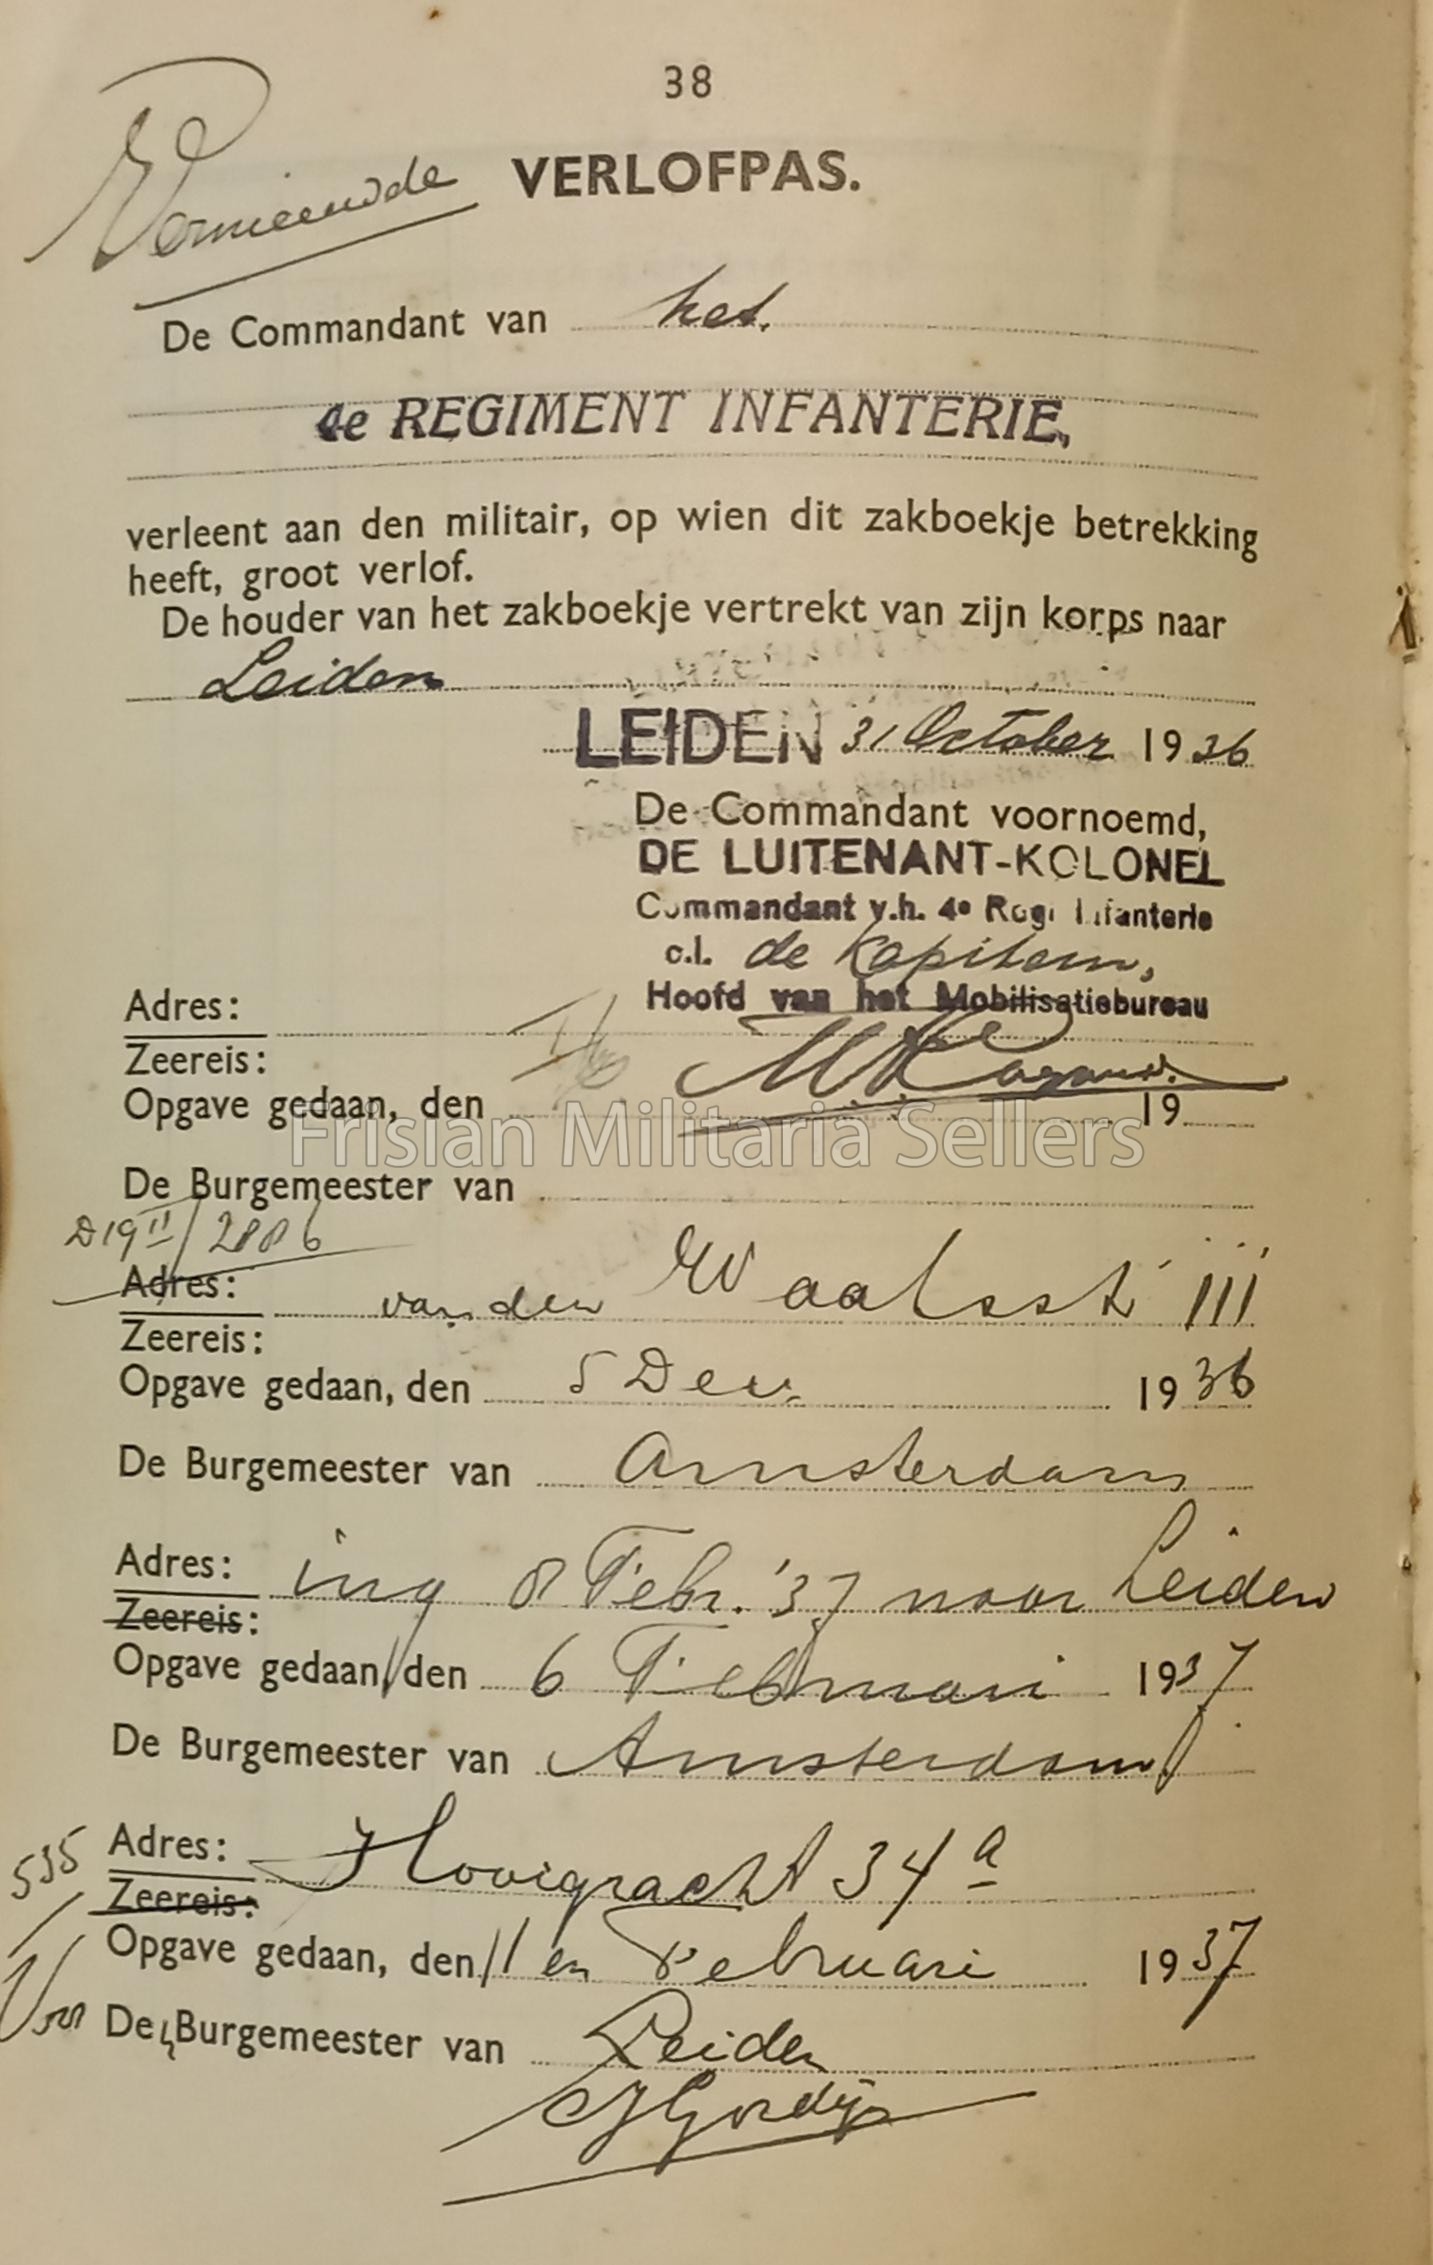 38
Vernieuwde VERLOFPAS.
De Commandant van het.
4e REGIMENT INFANTERIE,
verleent aan den militair, op wien dit zakboekje betrekking
heeft, groot verlof.
De houder van het zakboekje vertrekt van zijn korps naar
Leiden
LEIDEN 31 October 1936
De Commandant voornoemd,
DE LUITENANT-KOLONEL
Commandant v.h. 4e Regt Infanterie
o.l. de Kapitein,
Hoofd van het Mobilisatiebureau
Adres:
Zeereis:
Opgave gedaan, den 19
Frisian Militaria Sellers
De Burgemeester van
D 19 II / 2886
Adres: van der Waalsstr III
Zeereis:
Opgave gedaan, den 5 Dec. 1936
De Burgemeester van Amsterdam
Adres: ing 8 Febr. '37 naar Leiden
Zeereis:
Opgave gedaan, den 6 Februari 1937
De Burgemeester van Amsterdam
535
Adres: Hooigracht 34a
Zeereis:
Opgave gedaan, den 11 en Februari 1937
De Burgemeester van Leiden